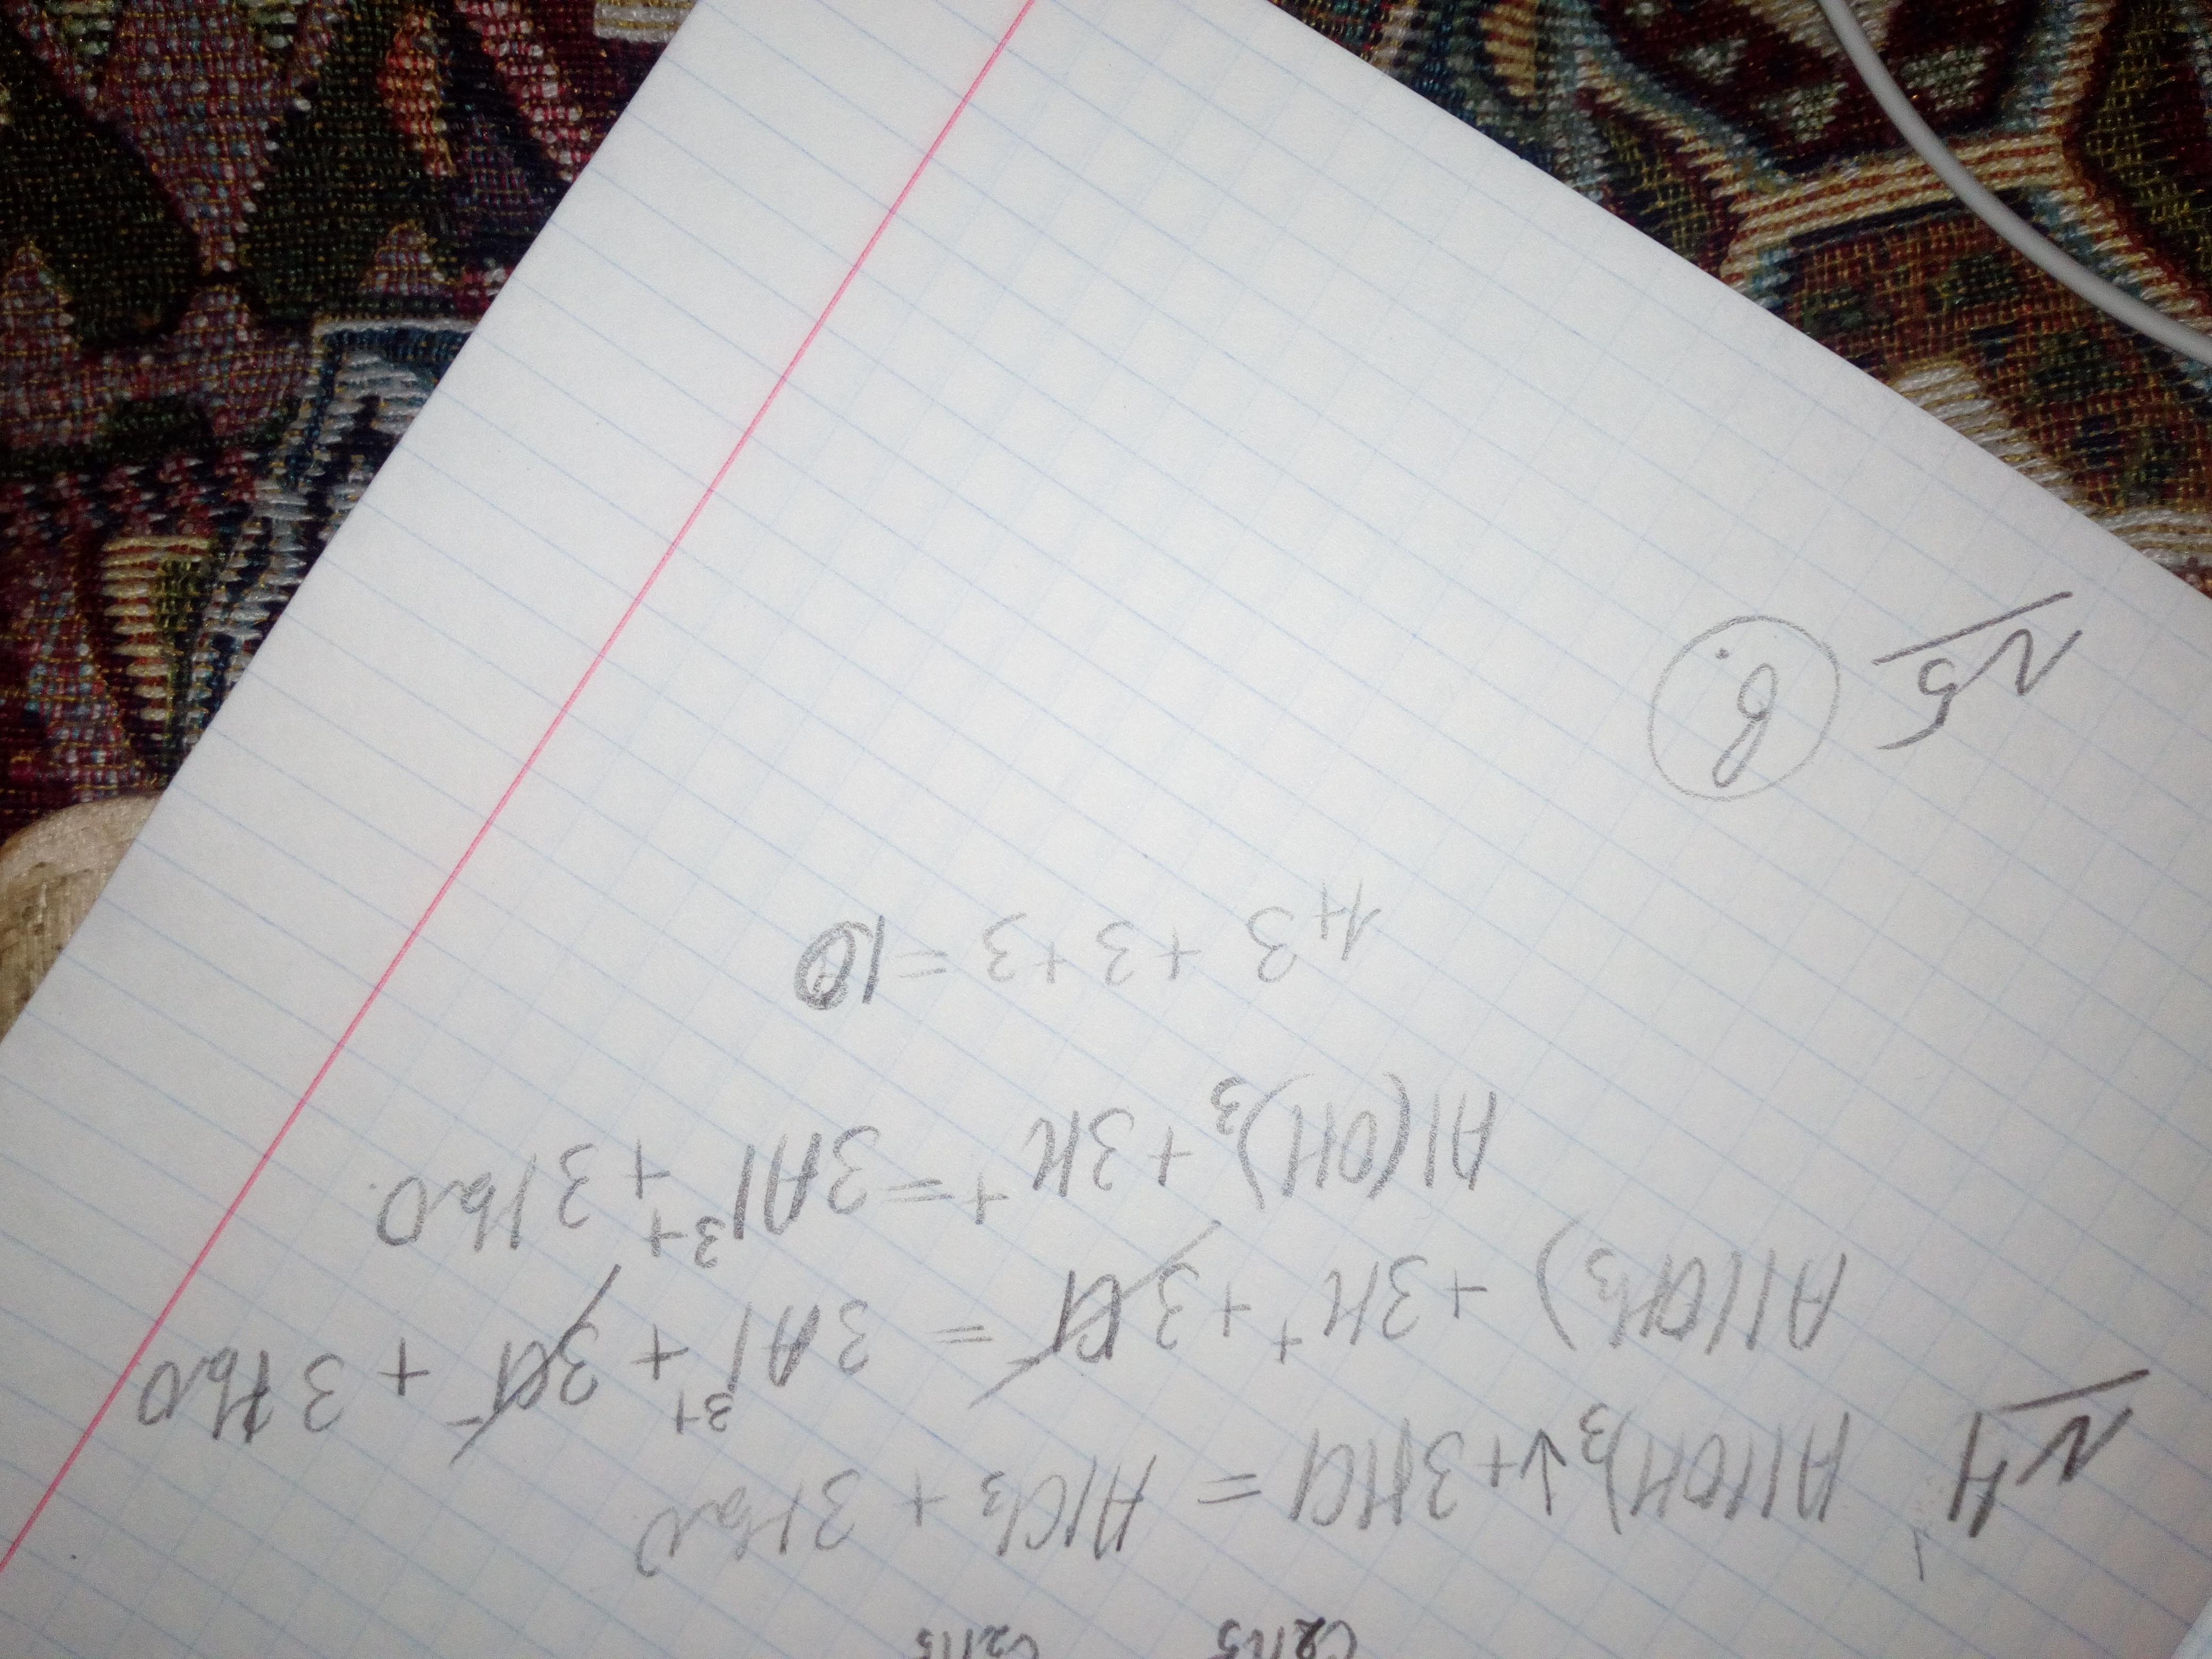 C2H5 C2H5
№4 Al(OH)3↓ + 3HCl = AlCl3 + 3H2O
Al(OH3) + 3H⁺ + 3Cl⁻ = 3Al³⁺ + 3Cl⁻ + 3H2O
Al(OH)3 + 3H⁺ = 3Al³⁺ + 3H2O.
1+3+3+3=10
№5 в.